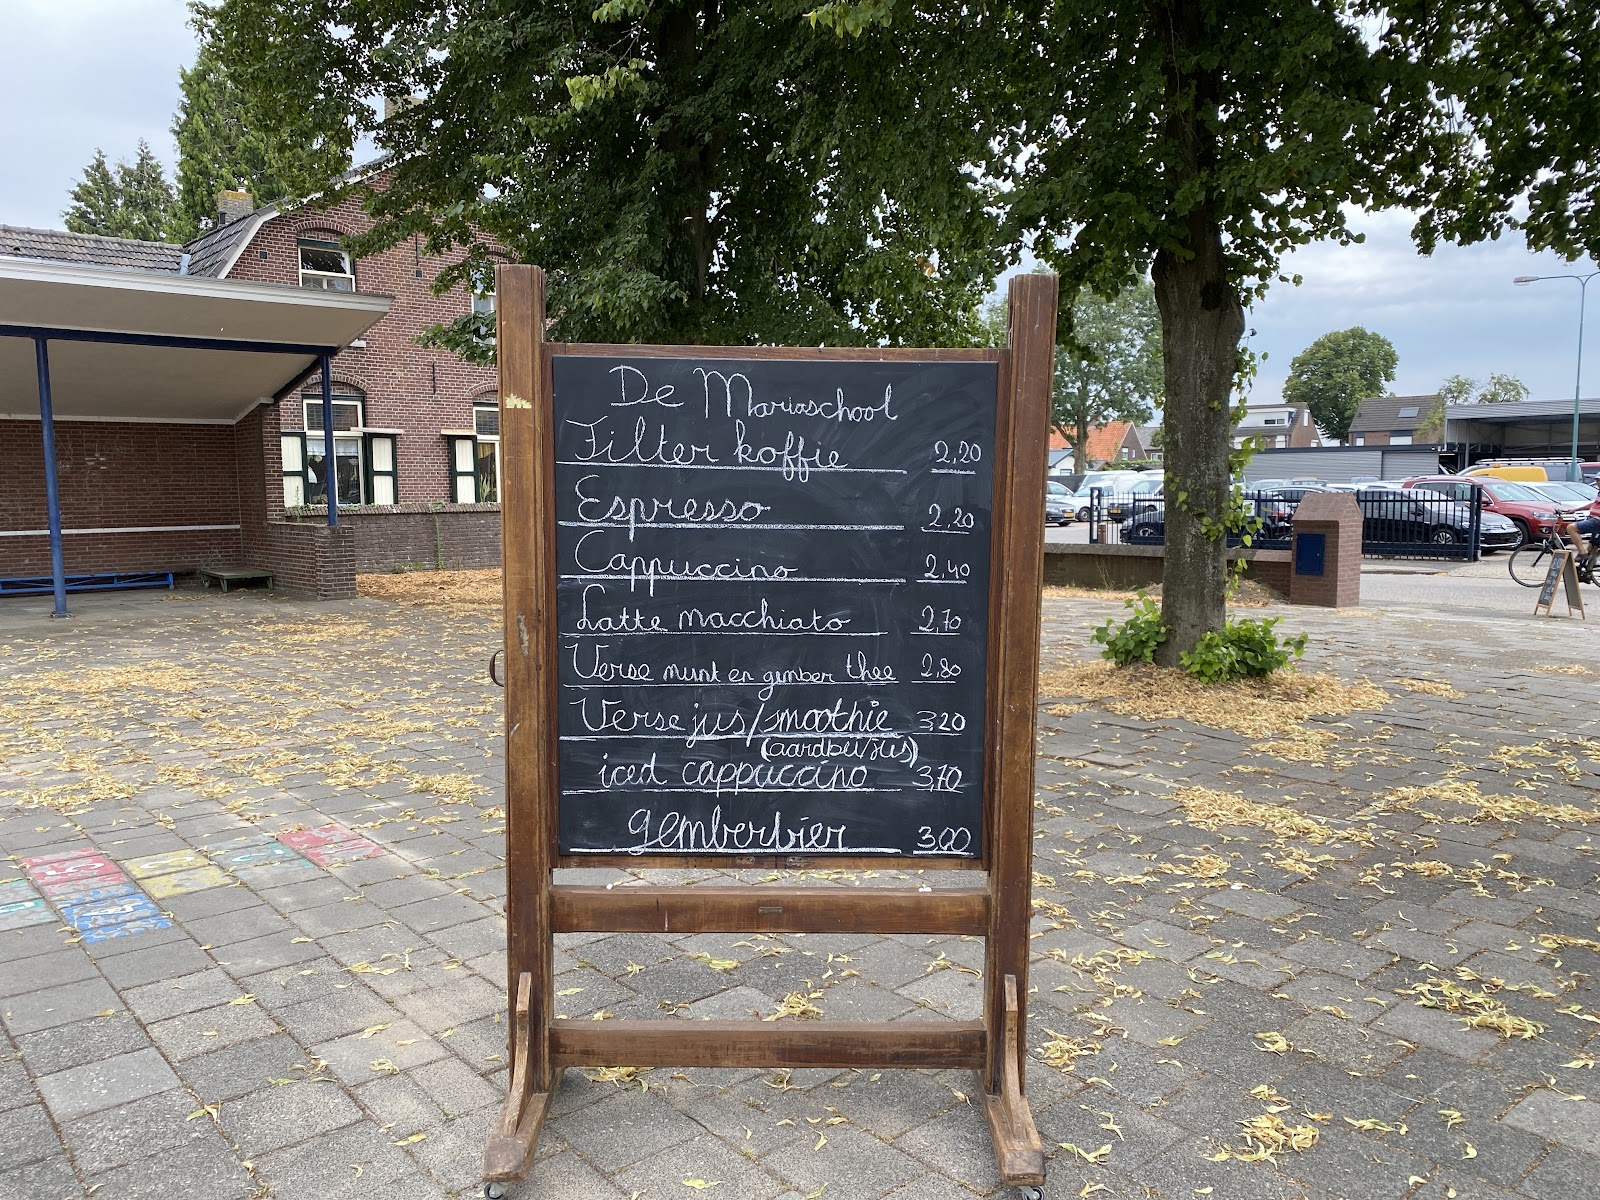 De Mariaschool
Filter koffie 2,20
Espresso 2,20
Cappuccino 2,40
Latte macchiato 2,70
Verse munt en gember thee 2,80
Verse jus/smoothie 3,20
(aardbei/jus)
iced cappuccino 3,70
gemberbier 3,00